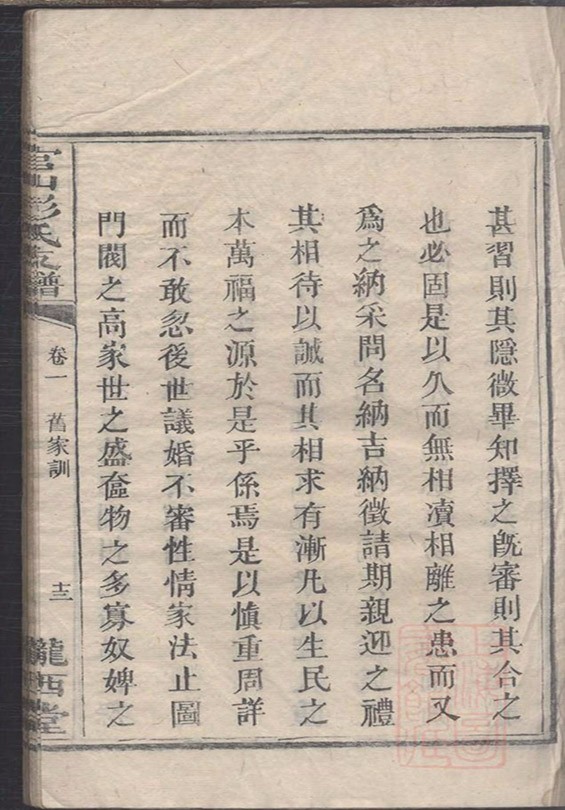 甚習則其隱微畢知擇之旣審則其合之
也必固是以久而無相瀆相離之患而又
爲之納采問名納吉納徵請期親迎之禮
其相待以誠而其相求有漸凡以生民之
本萬福之源於是乎係焉是以愼重周詳
而不敢忽後世議婚不審性情家法止圖
門閥之高家世之盛奩物之多寡奴婢之
官山彭氏支譜
卷一 舊家訓
十二
隴西堂